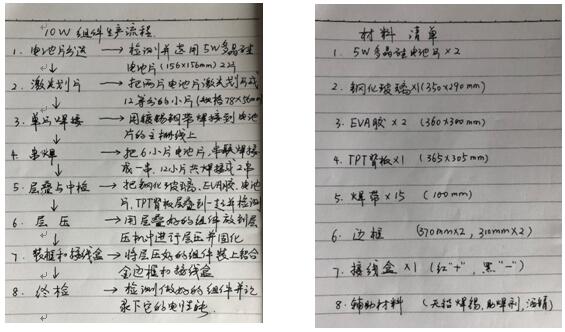 10W组件生产流程
1. 电池片分选 → 检测并选用5W多晶硅
电池片(156×156mm)2片
2. 激光划片 → 把两片电池片激光划片成
12等分的小片(规格78×56mm)
3. 单片焊接 → 用锡铜带焊接到电池
片的主栅线上
4. 串焊 → 把6小片电池片,串联焊接
成一串,12小片共焊接成2串
5. 层叠与中检 → 把钢化玻璃、EVA胶、电池
片、TPT背板层叠到一起并检测
6. 层压 → 用层叠好的组件放到层
压机中进行层压并固化
7. 装框和接线盒 → 将层压好的组件装上铝合
金边框和接线盒
8. 终检 → 检测做好的组件并记
录下它的电性能.
材料清单
1. 5W多晶硅电池片×2
2. 钢化玻璃×1(350×290mm)
3. EVA胶×2 (360×300mm)
4. TPT背板×1 (365×305mm)
5. 焊带×15 (100mm)
6. 边框 (370mm×2, 310mm×2)
7. 接线盒×1 (红"+", 黑"-")
8. 辅助材料 (无铅焊锡,助焊剂,酒精)